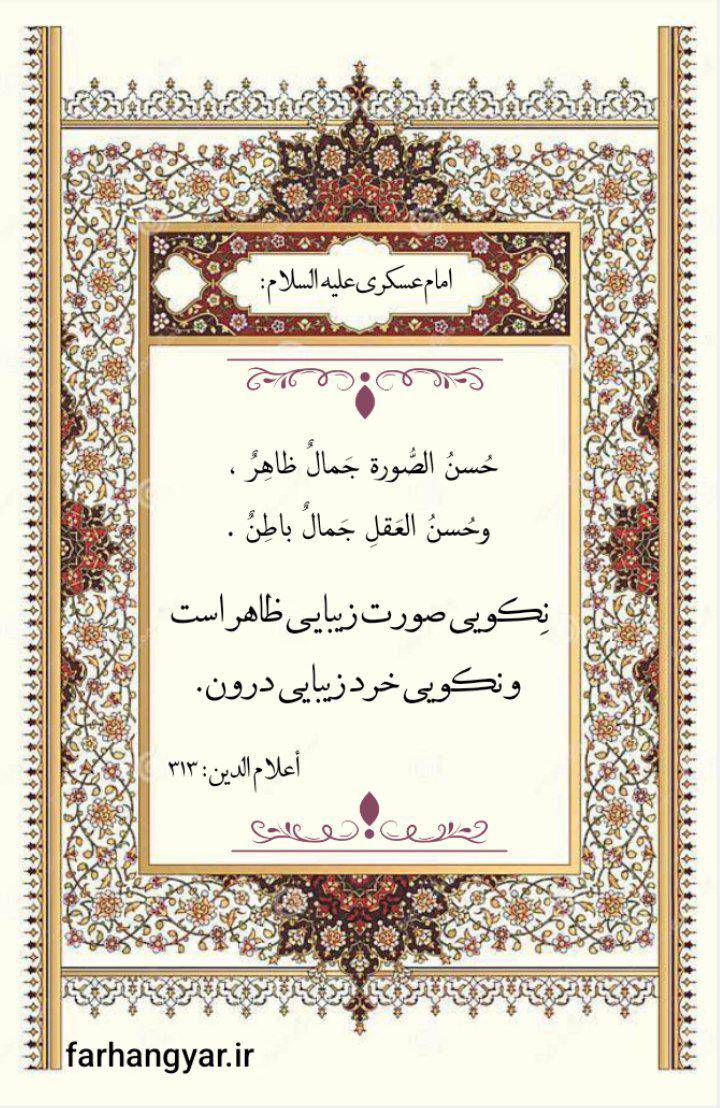 امام عسکری علیه السلام:
حُسنُ الصُّورة جَمالٌ ظاهِرٌ ،
وحُسنُ العَقلِ جَمالٌ باطِنٌ .
نِکویی صورت زیبایی ظاهر است
و نکویی خرد زیبایی درون.
أعلام الدین: ۳۱۳
farhangyar.ir